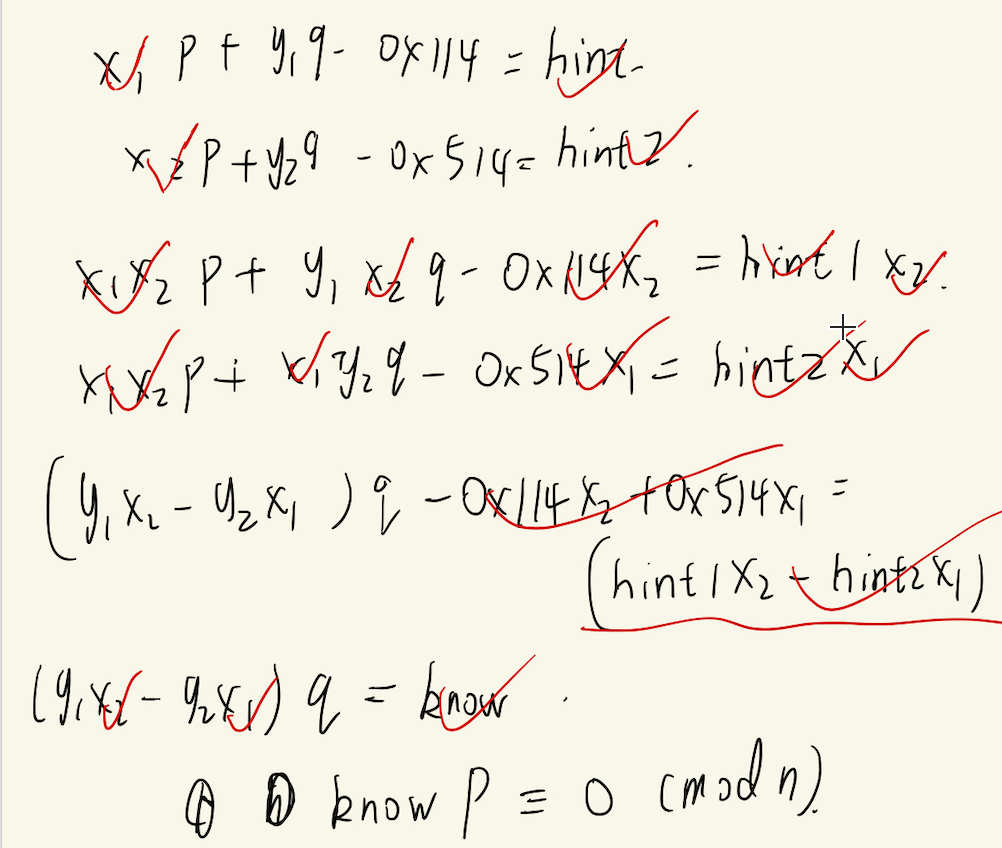 x₁ p + y₁ q - 0x114 = hint.
x₂ p + y₂ q - 0x514 = hint2.
x₁x₂ p + y₁ x₂ q - 0x114x₂ = hint1 x₂.
x₁x₂ p + x₁ y₂ q - 0x514 x₁ = hint2 x₁
(y₁x₂ - y₂x₁) q - 0x114x₂ + 0x514x₁ =
(hint1x₂ - hint2x₁)
(y₁x₂ - y₂x₁) q = know.
know p ≡ 0 (mod n).